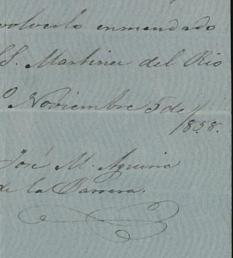 volverlo enmendado
SS. Martinez del Rio
Noviembre 5 de
1858.
José M. Aguirre
de la Barrera.